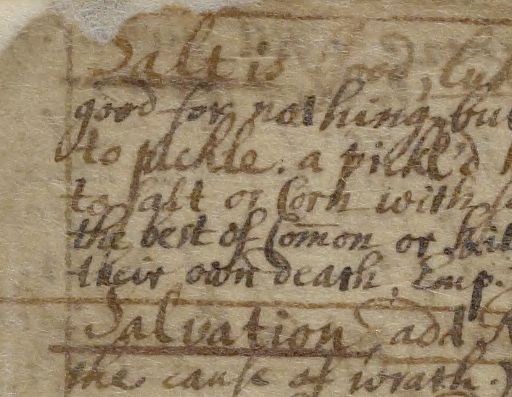 Salt is Good, Luk
good for nothing, but
to pickle. a pickl'd
to salt or Corn with
the best of Com̄on or
their own death, Emp.
Salvation, add
the cause of wrath.